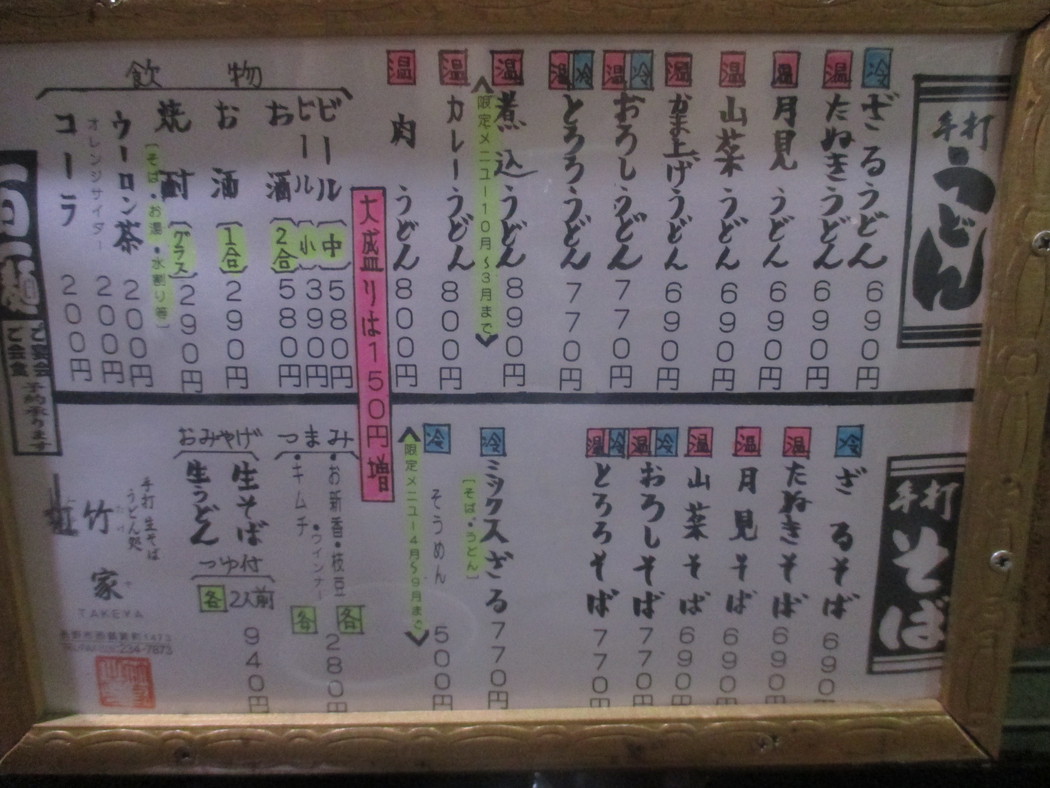 手打うどん
冷 ざるうどん 690円
温 たぬきうどん 690円
温 月見うどん 690円
温 山菜うどん 690円
温 かま上げうどん 690円
温 冷 おろしうどん 770円
温 冷 とろろうどん 770円
温 煮込うどん 890円
限定メニュー10月〜3月まで
温 カレーうどん 800円
温 肉うどん 800円
大盛りは150円増
飲物
ビール 中 580円
ビール 小 390円
お酒 2合 580円
お酒 1合 290円
焼酎 グラス 290円
[そば・お湯・水割り等]
ウーロン茶 200円
オレンジサイダー 200円
コーラ 200円
手打そば
冷 ざるそば 690円
温 たぬきそば 690円
温 月見そば 690円
温 山菜そば 690円
温 冷 おろしそば 770円
温 冷 とろろそば 770円
冷 ミックスざる 770円
[そば・うどん]
冷 そうめん 500円
限定メニュー4月〜9月まで
つまみ
・お新香・枝豆 各
・ウィンナー
・キムチ 各
280円
おみやげ
生そば
生うどん
つゆ付
各 2人前
940円
手打 生そば
うどん処
竹家
TAKEYA
234-7873
ご宴会
ご会食 予約承ります